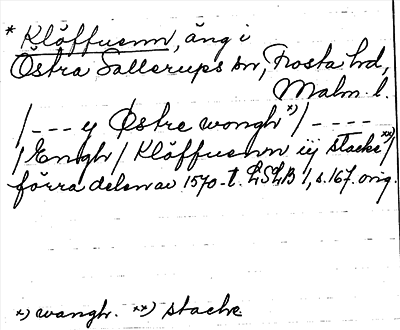 * Klöffuenn, äng i
Östra Sallerups sn, Frosta hd,
Malm. l.
/---- y Østre wongh *)/ -----
/Engh/ Klöffuenn iij stacke **)/
förra delen av 1570-t. LSLB 1, s. 167. orig.
*) wangh. **) stack